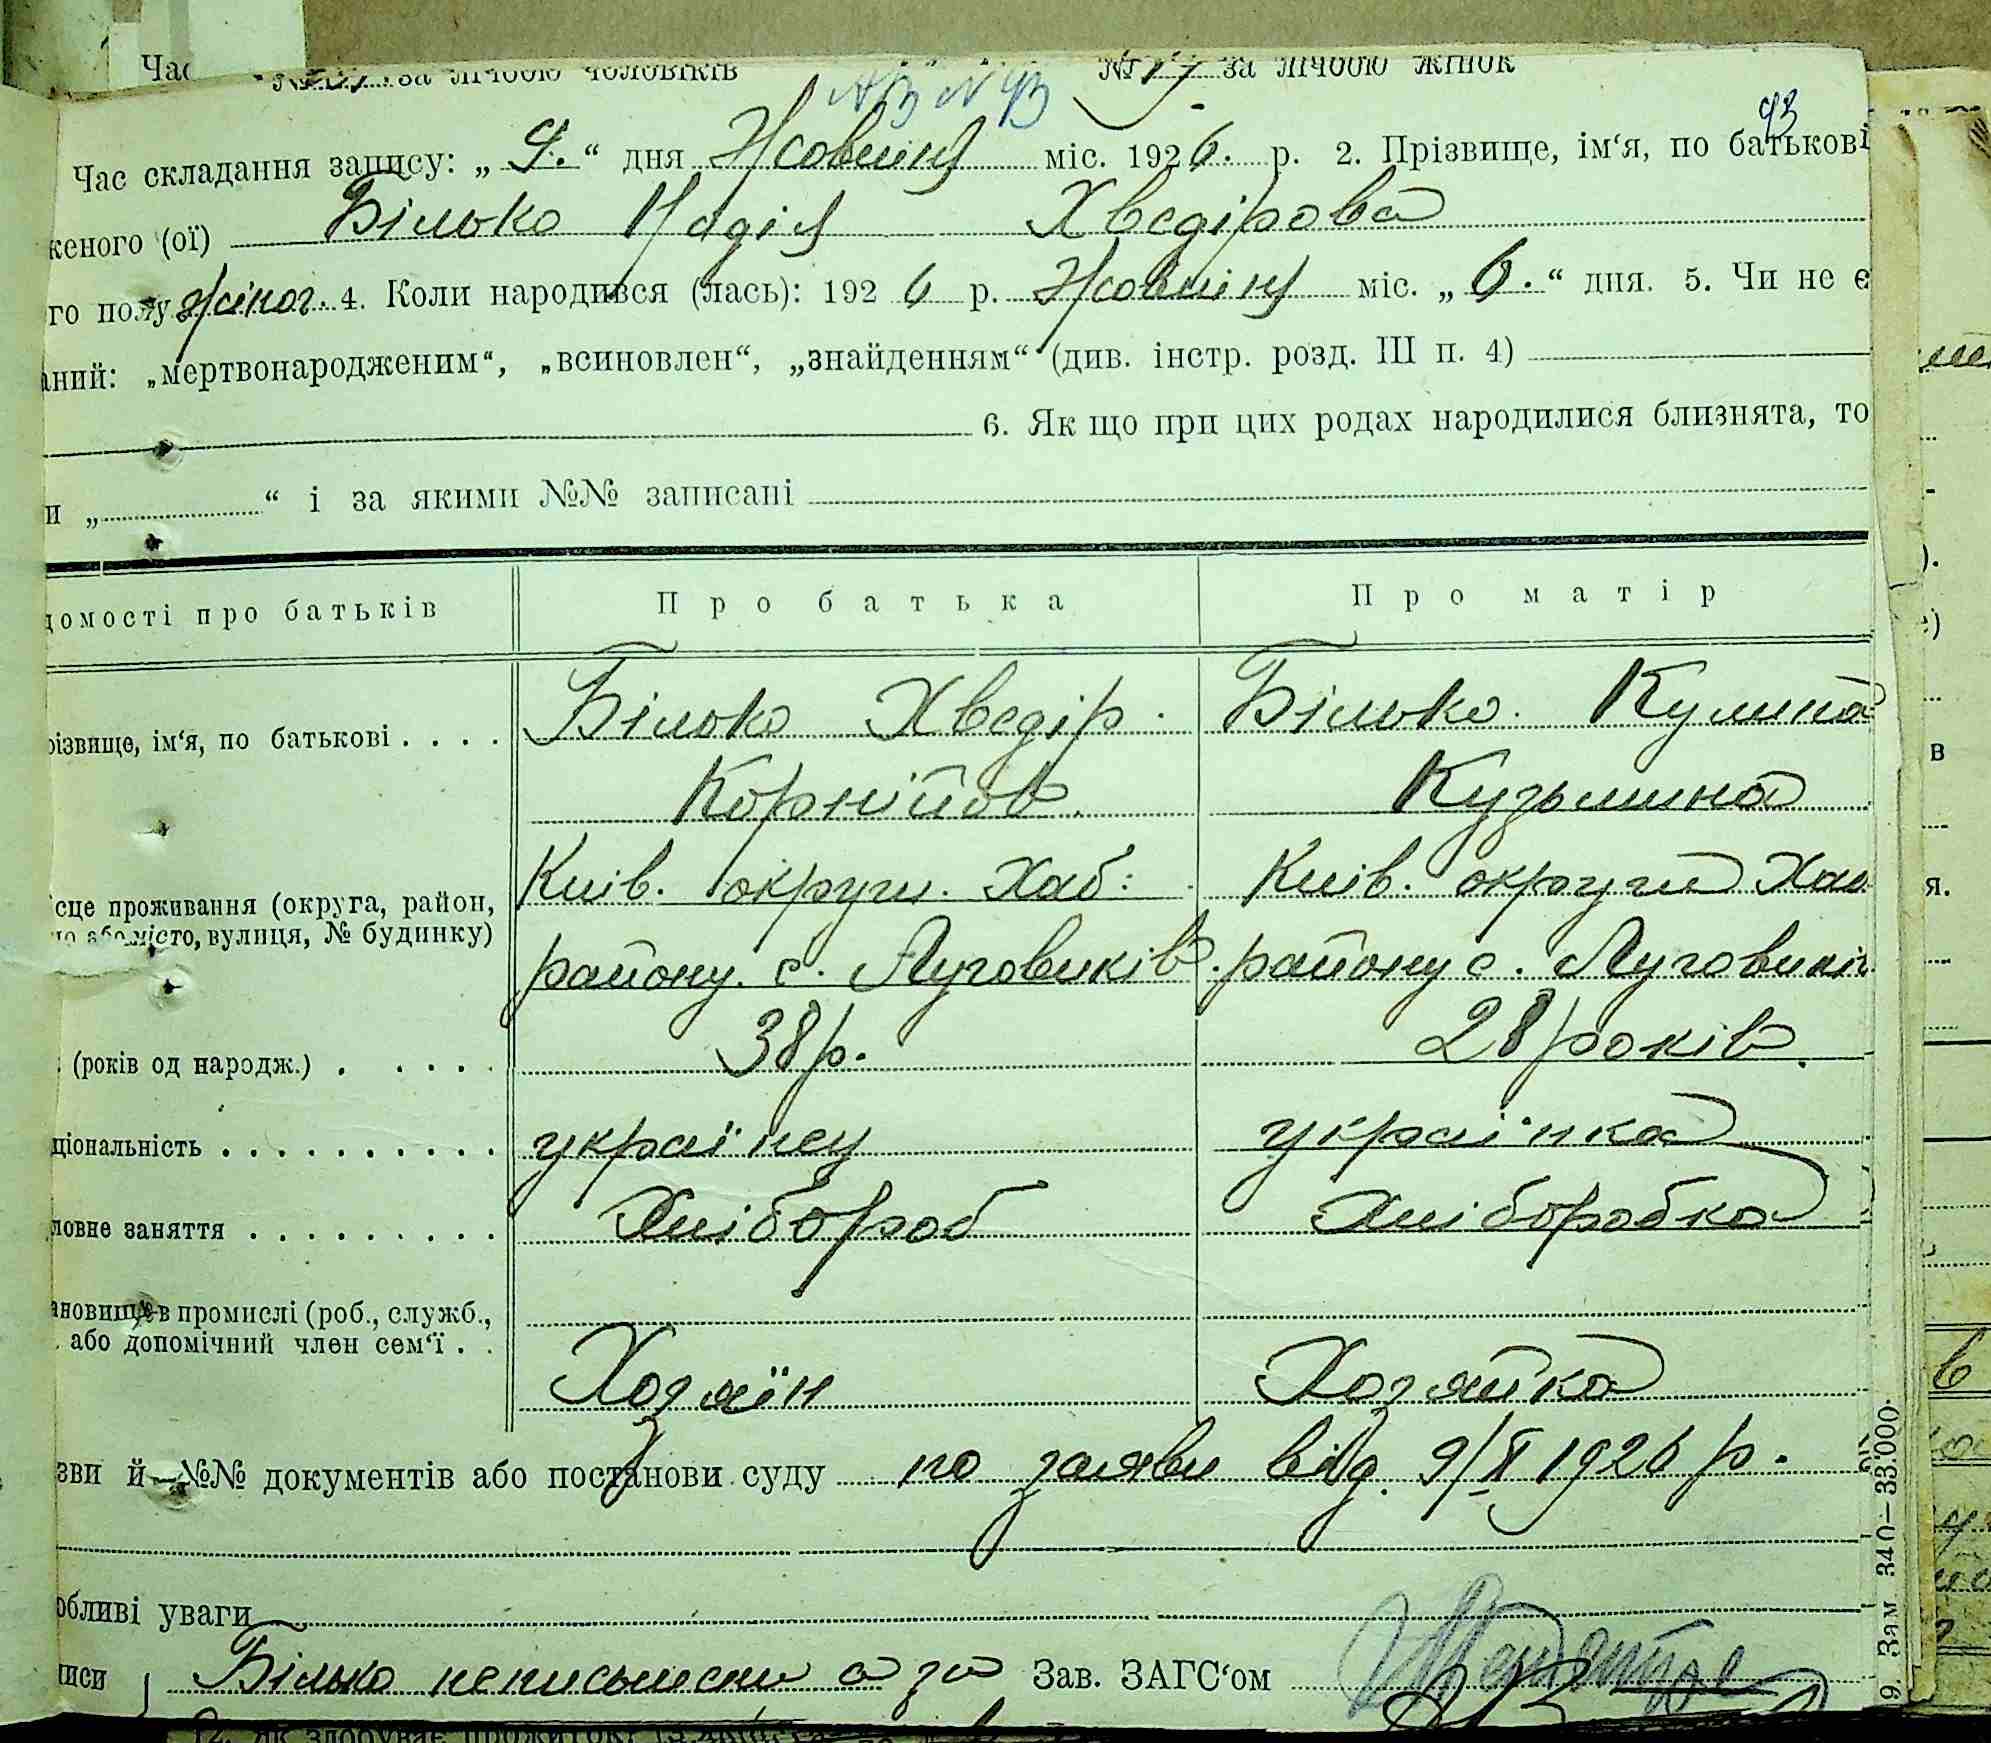 Час за лічбою чоловіків № 17 за лічбою жінок
93
Час складання запису: „ 9. “ дня Жовтня міс. 1926. р. 2. Прізвище, ім‘я, по батькові
женого (ої) Білько Надія Хведірова
го полу жіноч. 4. Коли народився (лась): 192 6 р. Жовтня міс. „ 6. “ дня. 5. Чи не є
аний: „мертвонародженим“, „всиновлен“, „знайденням“ (див. інстр. розд. III п. 4)
6. Як що при цих родах народилися близнята, то
и „ “ і за якими №№ записані
домості про батьків Про батька Про матір
різвище, ім‘я, по батькові Білько Хведір. Білько. Кулина
Корнійов. Кузьмина
Київ. округи. Хаб: Київ. округи Хаб
ісце проживання (округа, район,
або місто, вулиця, № будинку)
району. с. Луговиків. району с. Луговиків
(років од народж.) 38 р. 28 років.
ціональність українец українка
ловне заняття Хлібороб Хліборобка
ановище в промислі (роб., служб.,
або допомічний член сем‘ї
Хозяїн Хозяйка
зви й №№ документів або постанови суду по заяви від 9/X 1926 р.
обливі уваги
писи Білько неписьмени а за Зав. ЗАГС‘ом
9. Зам 340—33.000.
12. Як здобуває прожиток: